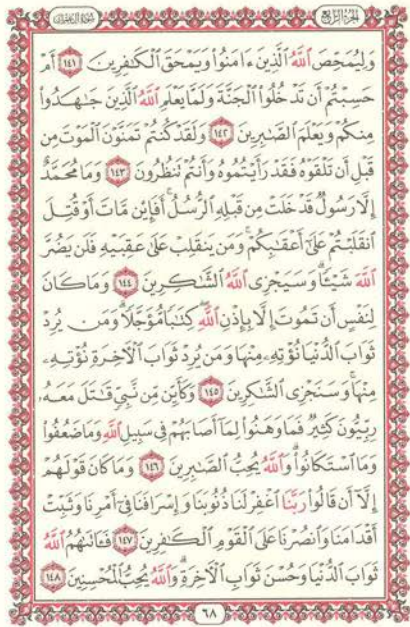 سُورَةُ آلِ عِمْرَانَ
الجُزءُ الرَّابِعُ
وَلِيُمَحِّصَ ٱللَّهُ ٱلَّذِينَ ءَامَنُوا۟ وَيَمْحَقَ ٱلْكَٰفِرِينَ ١٤١ أَمْ
حَسِبْتُمْ أَن تَدْخُلُوا۟ ٱلْجَنَّةَ وَلَمَّا يَعْلَمِ ٱللَّهُ ٱلَّذِينَ جَٰهَدُوا۟
مِنكُمْ وَيَعْلَمَ ٱلصَّٰبِرِينَ ١٤٢ وَلَقَدْ كُنتُمْ تَمَنَّوْنَ ٱلْمَوْتَ مِن
قَبْلِ أَن تَلْقَوْهُ فَقَدْ رَأَيْتُمُوهُ وَأَنتُمْ تَنظُرُونَ ١٤٣ وَمَا مُحَمَّدٌ
إِلَّا رَسُولٌ قَدْ خَلَتْ مِن قَبْلِهِ ٱلرُّسُلُ ۚ أَفَإِي۟ن مَّاتَ أَوْ قُتِلَ
ٱنقَلَبْتُمْ عَلَىٰٓ أَعْقَٰبِكُمْ ۚ وَمَن يَنقَلِبْ عَلَىٰ عَقِبَيْهِ فَلَن يَضُرَّ
ٱللَّهَ شَيْـًٔا ۗ وَسَيَجْزِى ٱللَّهُ ٱلشَّٰكِرِينَ ١٤٤ وَمَا كَانَ
لِنَفْسٍ أَن تَمُوتَ إِلَّا بِإِذْنِ ٱللَّهِ كِتَٰبًا مُّؤَجَّلًا ۗ وَمَن يُرِدْ
ثَوَابَ ٱلدُّنْيَا نُؤْتِهِۦ مِنْهَا وَمَن يُرِدْ ثَوَابَ ٱلْءَاخِرَةِ نُؤْتِهِۦ
مِنْهَا ۚ وَسَنَجْزِى ٱلشَّٰكِرِينَ ١٤٥ وَكَأَيِّن مِّن نَّبِىٍّ قَٰتَلَ مَعَهُۥ
رِبِّيُّونَ كَثِيرٌ فَمَا وَهَنُوا۟ لِمَآ أَصَابَهُمْ فِى سَبِيلِ ٱللَّهِ وَمَا ضَعُفُوا۟
وَمَا ٱسْتَكَانُوا۟ ۗ وَٱللَّهُ يُحِبُّ ٱلصَّٰبِرِينَ ١٤٦ وَمَا كَانَ قَوْلَهُمْ
إِلَّآ أَن قَالُوا۟ رَبَّنَا ٱغْفِرْ لَنَا ذُنُوبَنَا وَإِسْرَافَنَا فِىٓ أَمْرِنَا وَثَبِّتْ
أَقْدَامَنَا وَٱنصُرْنَا عَلَى ٱلْقَوْمِ ٱلْكَٰفِرِينَ ١٤٧ فَـَٔاتَىٰهُمُ ٱللَّهُ
ثَوَابَ ٱلدُّنْيَا وَحُسْنَ ثَوَابِ ٱلْءَاخِرَةِ ۗ وَٱللَّهُ يُحِبُّ ٱلْمُحْسِنِينَ ١٤٨
٦٨